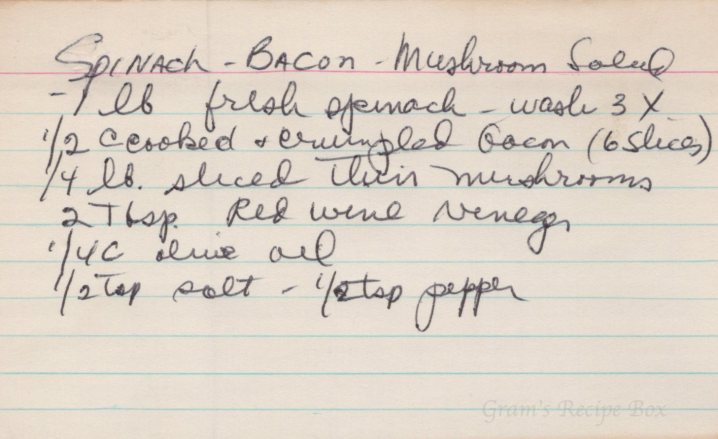 Spinach - Bacon - Mushroom Salad
- 1 lb fresh spinach - wash 3 X
1/2 C cooked + crumpled bacon (6 slices)
1/4 lb. sliced thin mushrooms
2 Tbsp. Red wine vinegar
1/4 C olive oil
1/2 tsp salt - 1/2 tsp pepper
Gram's Recipe Box